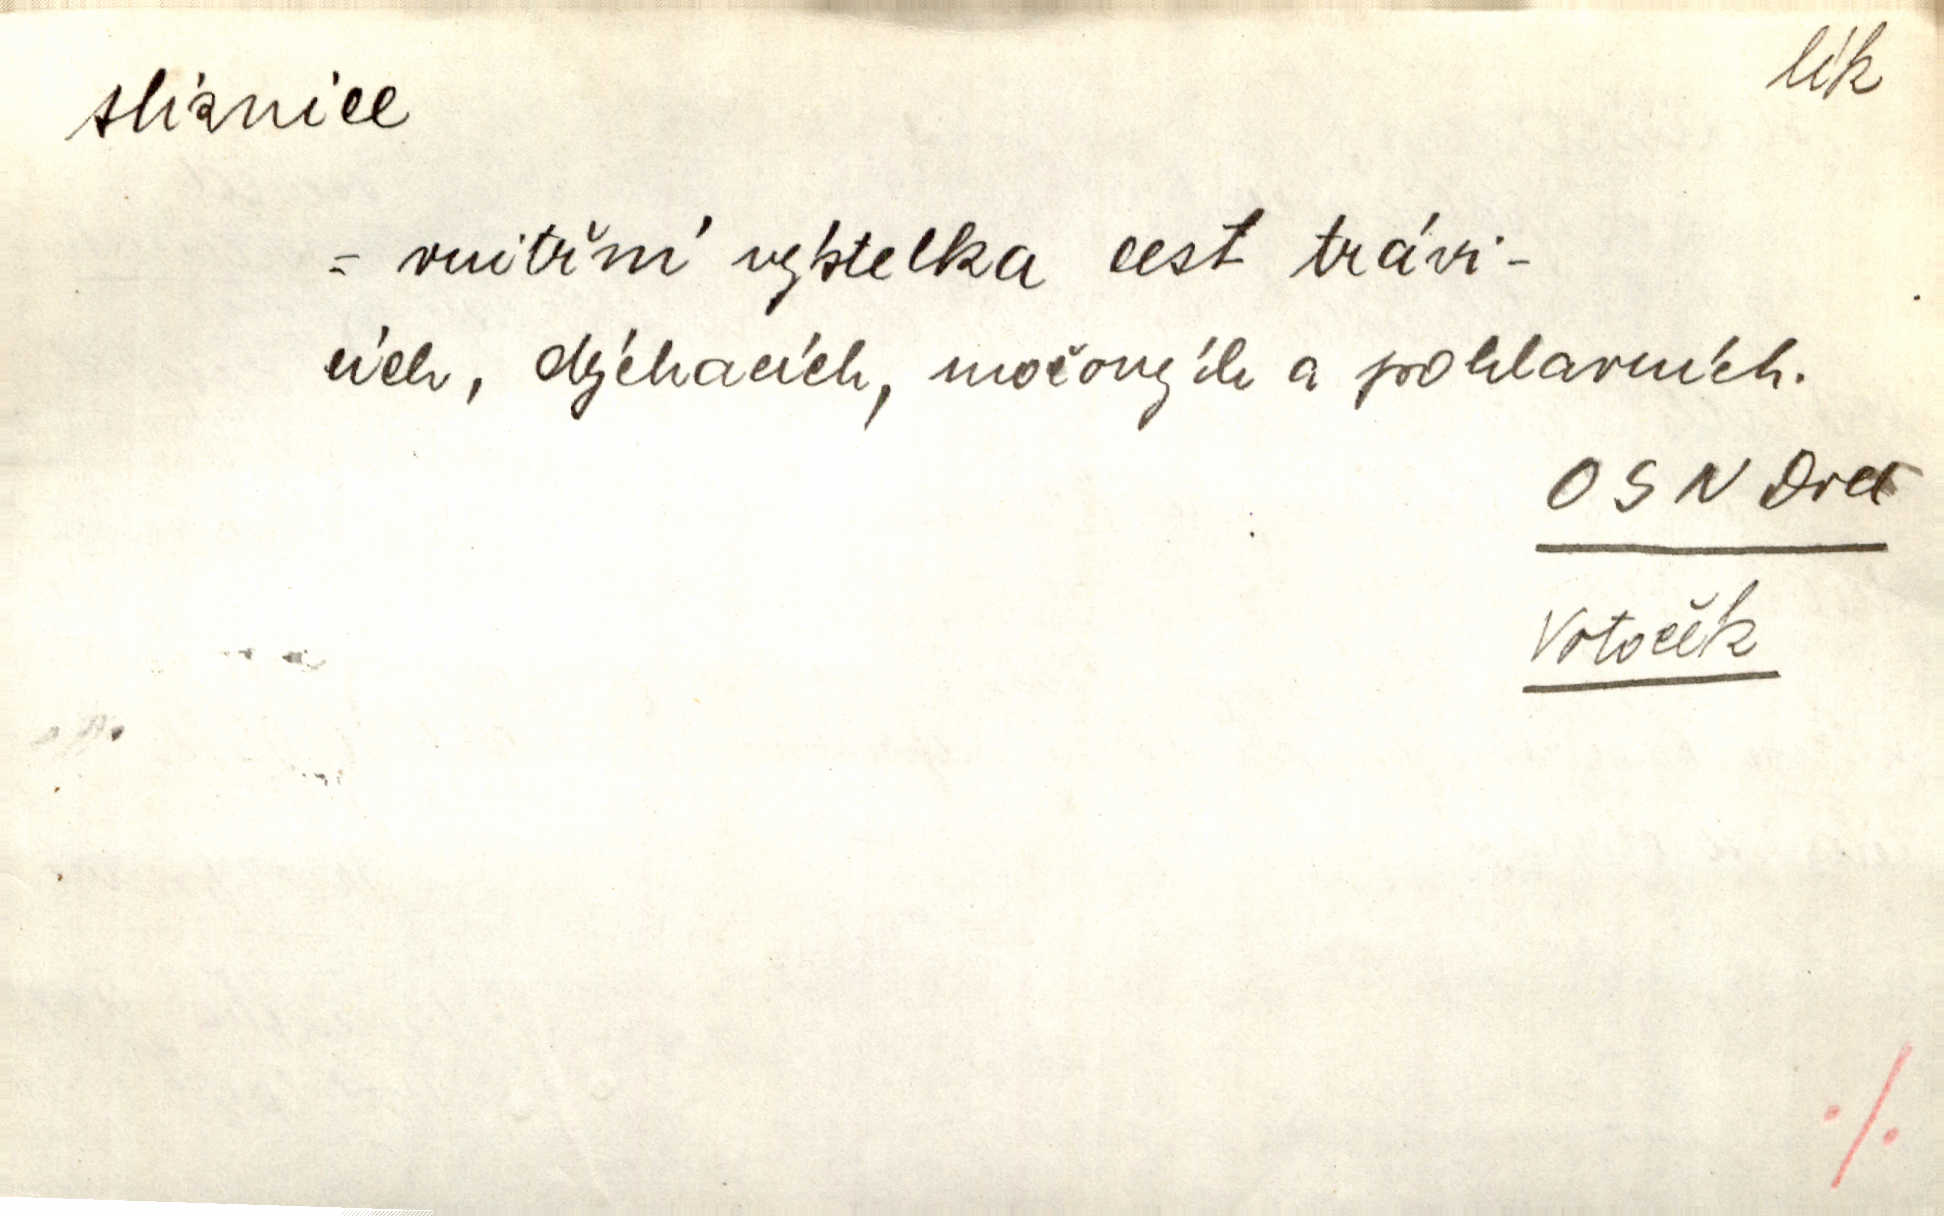 sliznice
lék
= vnitřní výstelka cest trávi-
cích, dýchacích, močových a pohlavních.
OSN Dod
Votoček
·/.